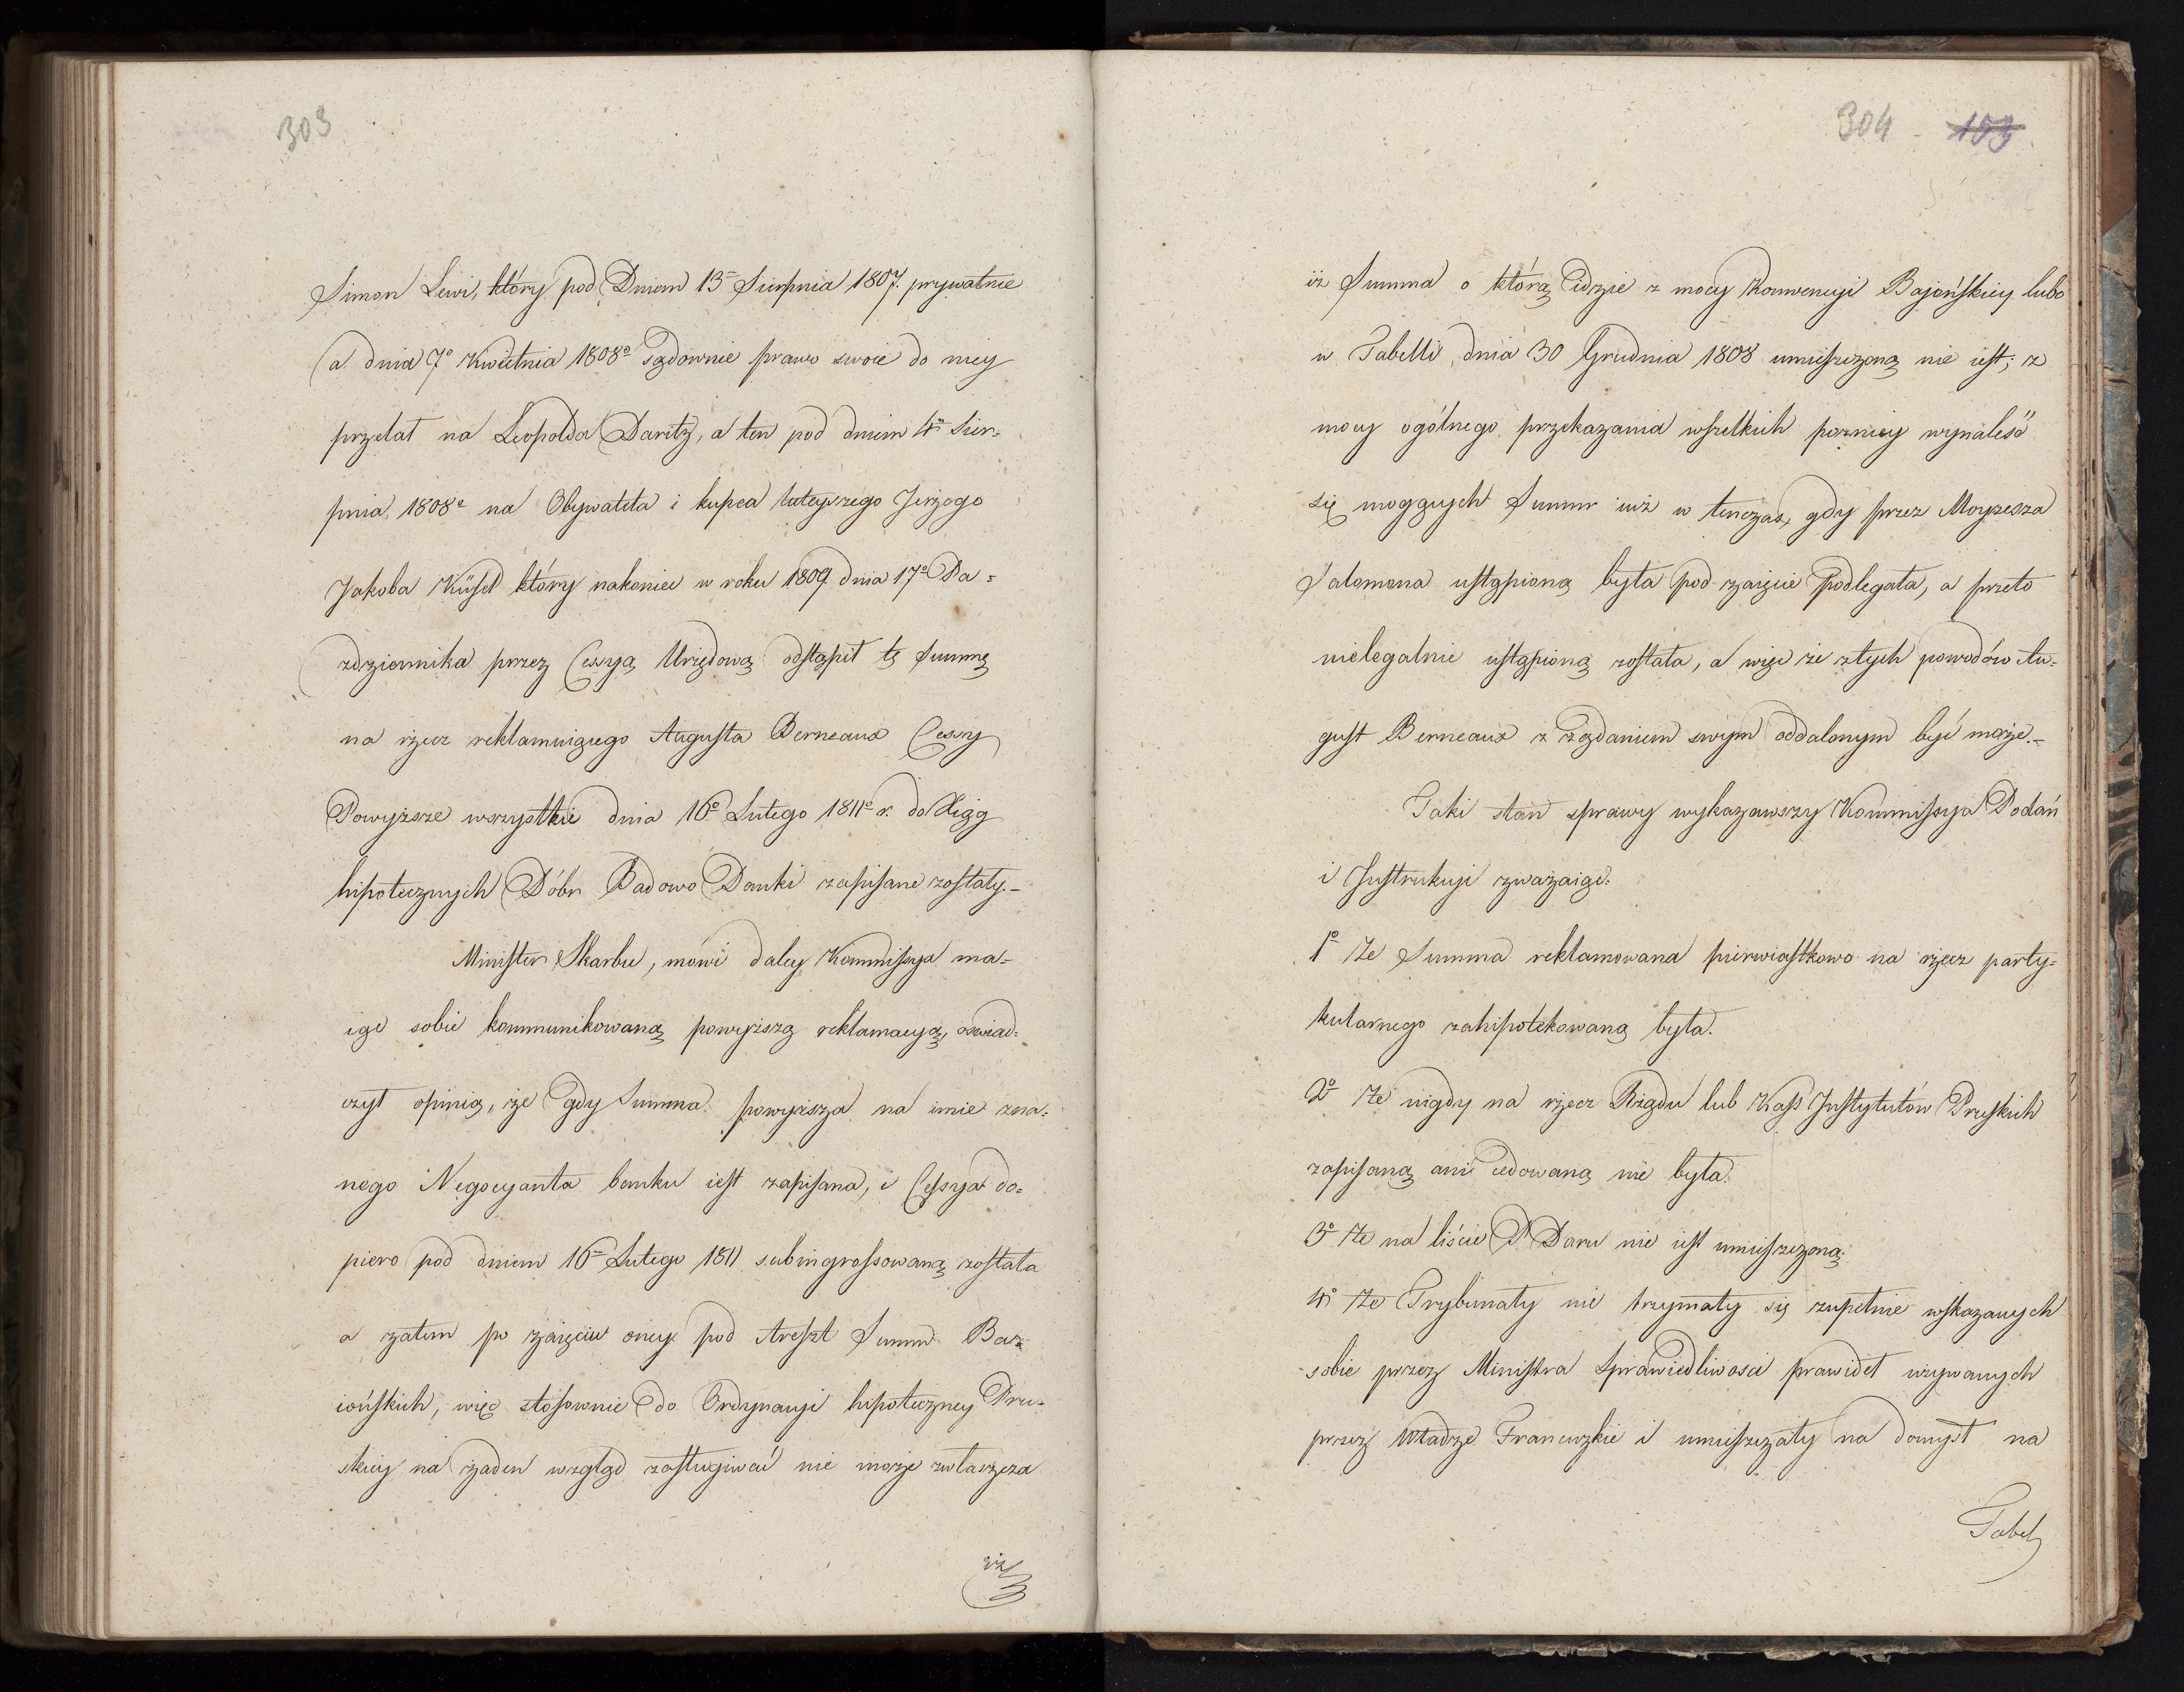 303
Simon Lewi, który pod Dniem 13º Sierpnia 1807. prywatnie
a dnia 7º Kwietnia 1808º sądownie prawo swoie do niey
przelał na Leopolda Daritz, a ten pod dniem 4º Sier=
pnia 1808º na Obywatela i kupca tuteyszego Jerzego
Jakoba Küsel który nakoniec w roku 1809 dnia 17º Pa=
zdziernika przez Cessyą Urzędową odstąpił tę Summę
na rzecz reklamuiącego Augusta Berneaux Cessye
Powyższe wszystkie dnia 16º Lutego 1811º r. do Xiąg
hipotecznych Dóbr Badowo Danki zapisane zostały.-
Minister Skarbu, mówi daley Kommissya ma=
iąc sobie kommunikowaną powyższą reklamacyą, oświad=
czył opinią, że gdy Summa powyższa na imie zna=
nego Negocyanta banku iest zapisana, i Cessya do=
piero pod dniem 16º Lutego 1811 subingrossowaną została
a zatem po zaięciu oney pod Areszt Summ Ba=
iońskich, więc stosownie do Ordynacyi hipoteczney Pru=
skiey na żaden wzgląd zasługiwać nie może zwłaszcza
iż
304 - 153
iż Summa o którą idzie z mocy Konwencyi Bajońskiey lubo
w Tabelli dnia 30 Grudnia 1808 umieszczoną nie iest; z
mocy ogólnego przekazania wszelkich pozniey wynaleść
się mogących Summ iuż w tenczas, gdy przez Moyzesza
Salomona ustąpioną była pod zaięcie podlegała, a przeto
nielegalnie ustąpioną została, a więc ze złych powodów Au=
gust Berneaux z żądaniem swym oddalonym być może.-
Taki stan sprawy wykazawszy Kommissya Podań
i Instrukcyi zważaiąc:
1º Że Summa reklamowana pierwiastkowo na rzecz party=
kularnego zahipotekowaną była.
2º Że nigdy na rzecz Rządu lub Kass Instytutów Pruskich
zapisaną ani cedowaną nie była.
3º Że na liście P Daru nie iest umieszczoną.
4º Że Trybunały nie trzymały się zupełnie wskazanych
sobie przez Ministra Sprawiedliwosci prawideł wzywanych
przez Władze Francuzkie i umieszczały na domysł na
Tabel